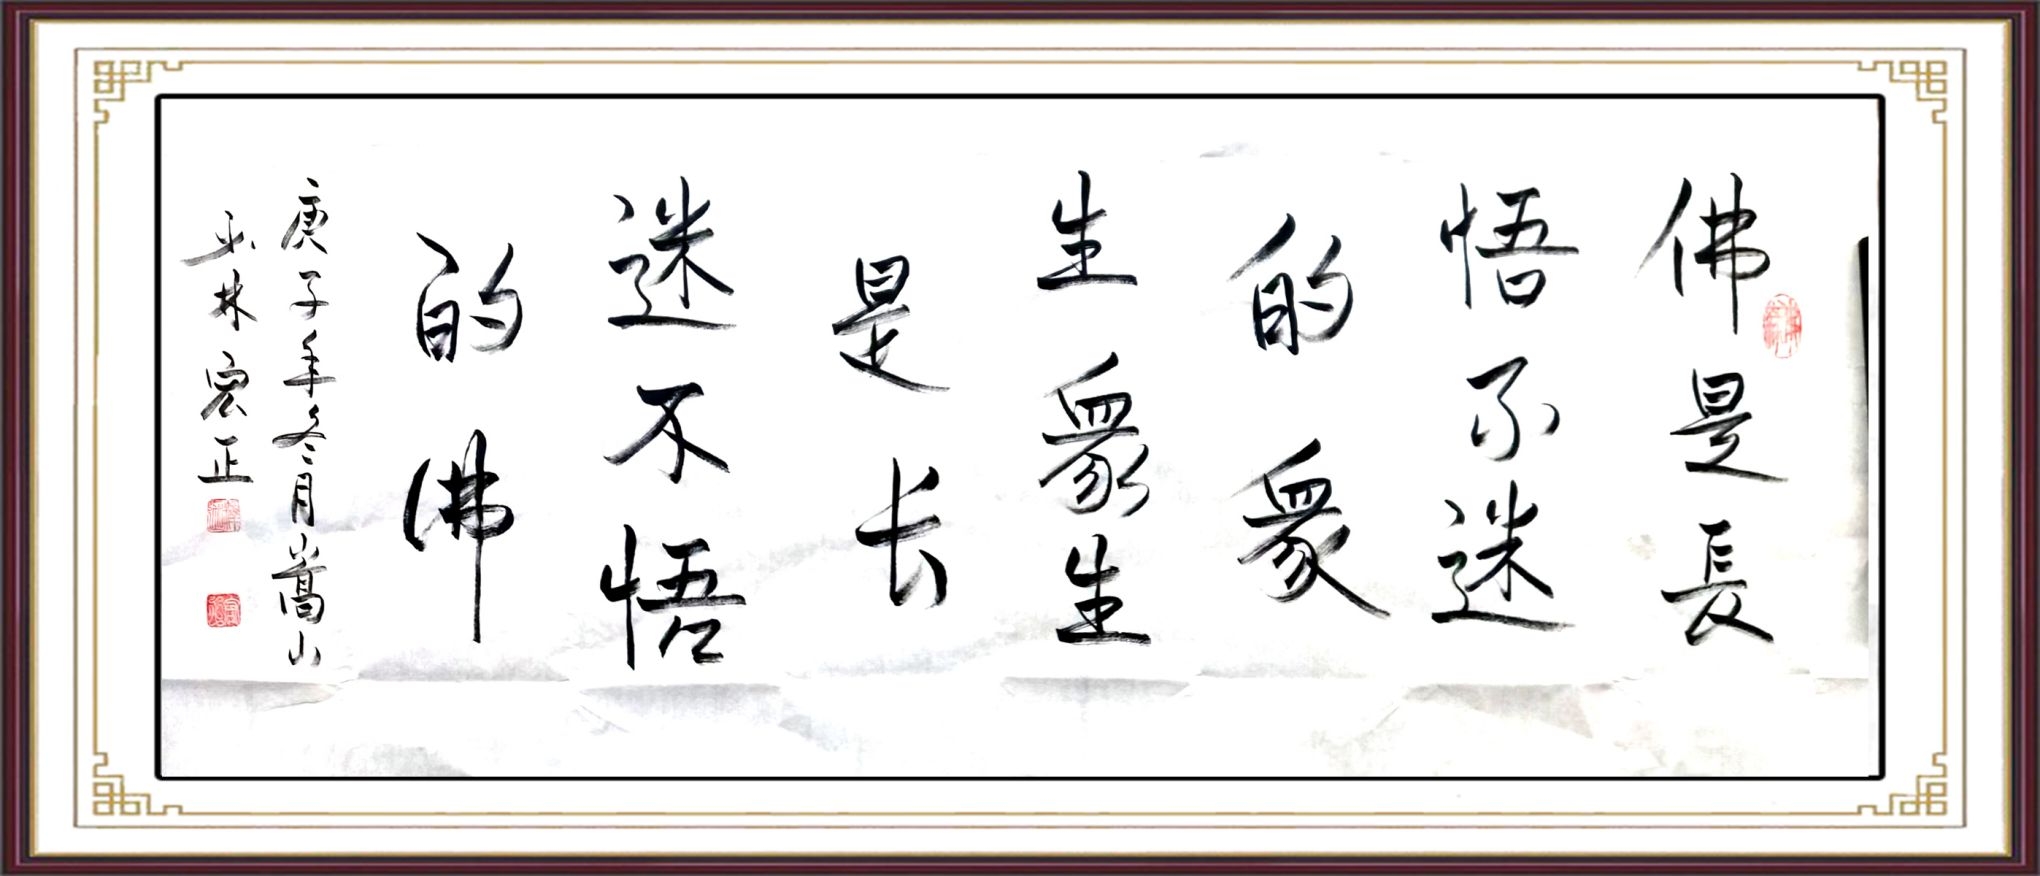 佛是長
悟不迷
的衆
生衆生
是长
迷不悟
的佛
庚子年冬月嵩山
少林宏正